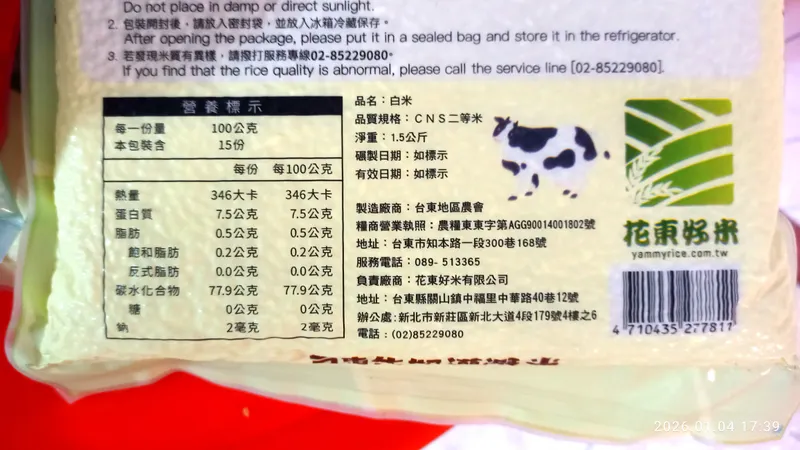 Do not place in damp or direct sunlight.
2. 包裝開封後，請放入密封袋，並放入冰箱冷藏保存。
After opening the package, please put it in a sealed bag and store it in the refrigerator.
3. 若發現米質有異樣，請撥打服務專線02-85229080。
If you find that the rice quality is abnormal, please call the service line [02-85229080].
營養標示
每一份量 100公克
本包裝含 15份
每份 每100公克
熱量 346大卡 346大卡
蛋白質 7.5公克 7.5公克
脂肪 0.5公克 0.5公克
飽和脂肪 0.2公克 0.2公克
反式脂肪 0.0公克 0.0公克
碳水化合物 77.9公克 77.9公克
糖 0公克 0公克
鈉 2毫克 2毫克
品名：白米
品質規格：CNS二等米
淨重：1.5公斤
碾製日期：如標示
有效日期：如標示
製造廠商：台東地區農會
糧商營業執照：農糧東東字第AGG90014001802號
地址：台東市知本路一段300巷168號
服務電話：089-513365
負責廠商：花東好米有限公司
地址：台東縣關山鎮中福里中華路40巷12號
辦公處：新北市新莊區新北大道4段179號4樓之6
電話：(02)85229080
花東好米
yammyrice.com.tw
4 710435 277811
2026.01.04 17:39